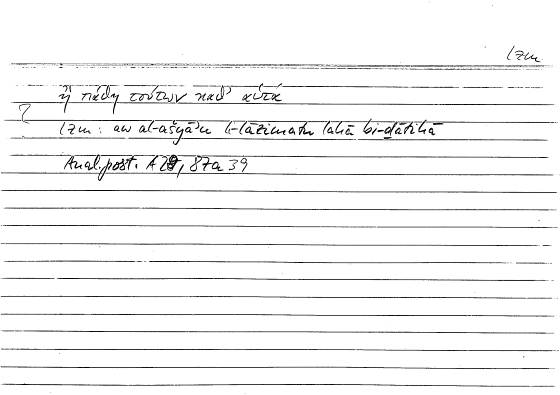 lzm
ἢ πάθη τούτων καθ' αὑτά
lzm : aw al-ašyāʾu l-lāzimatu lahā bi-ḏātihā
Anal. post. A 28, 87a39